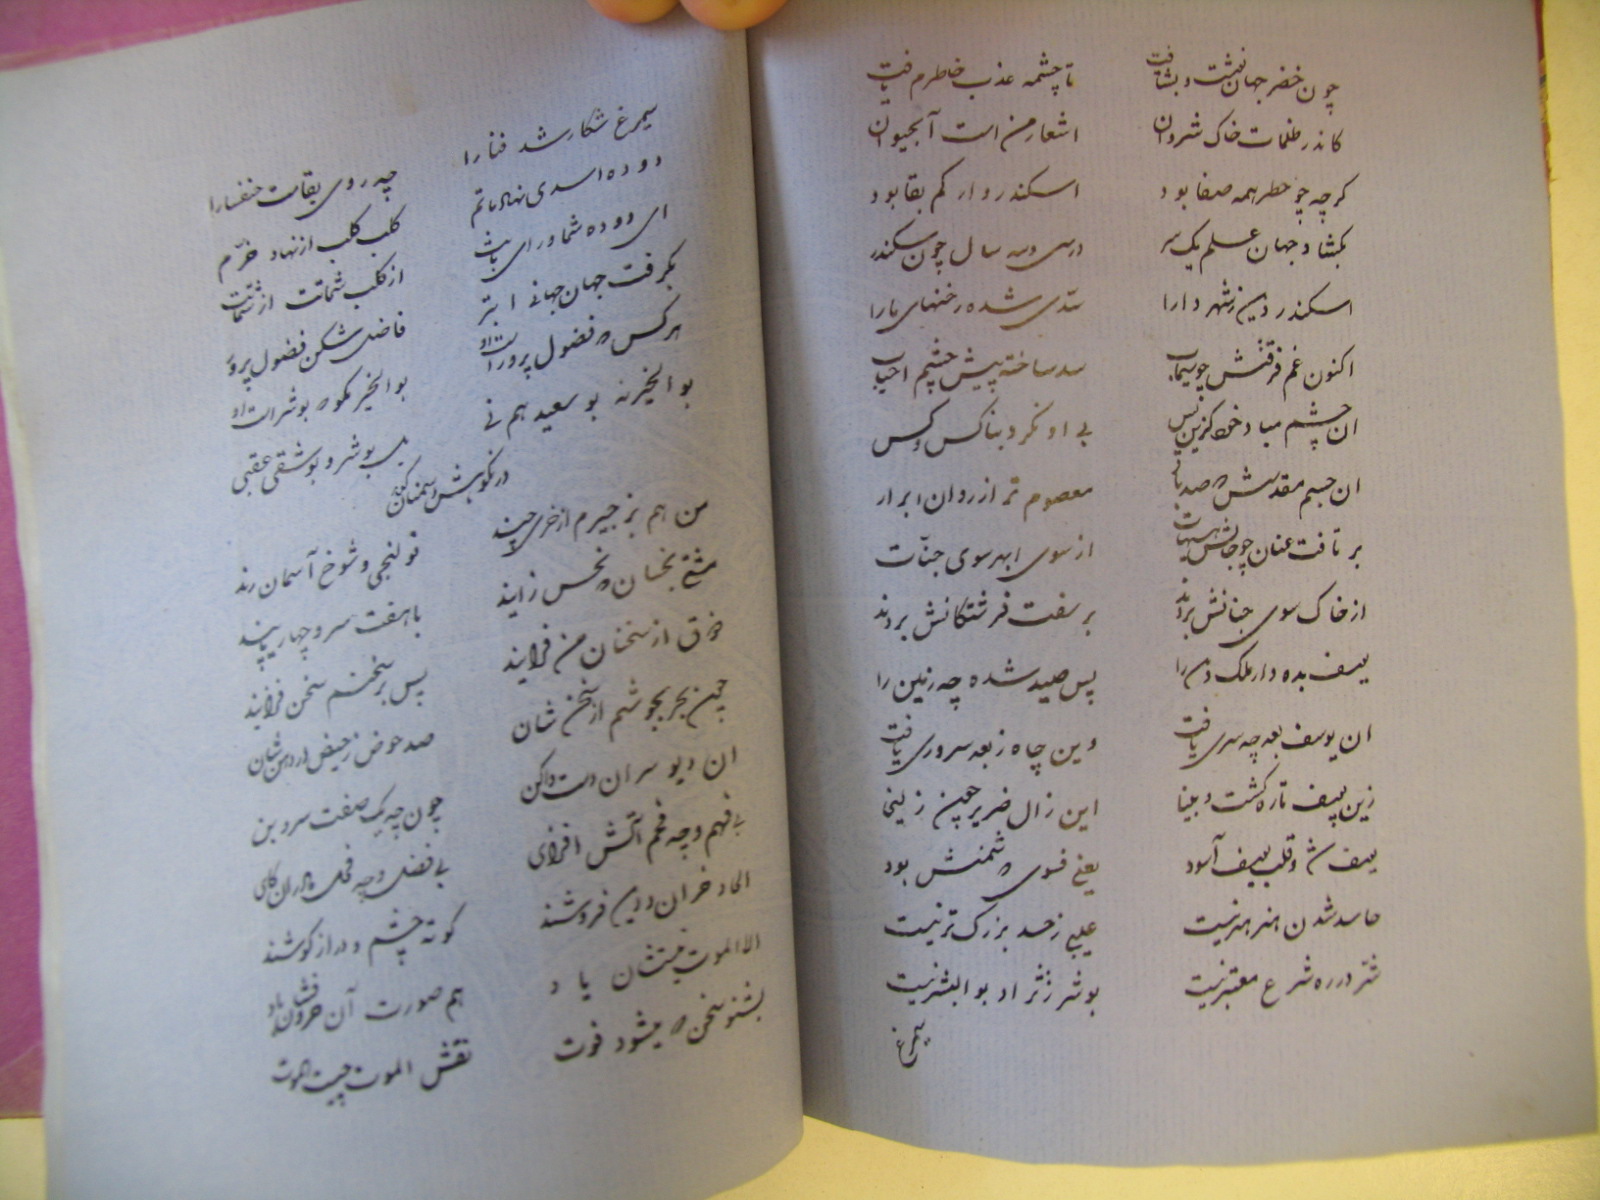 چون خضر جهان نبشت و بشتافت تا چشمه عذب خاطرم یافت
کاندر ظلمات خاک شروان اشعار من است آبحیوان
کرچه چو خطر همه صفا بود اسکندروار کم بقا بود
بکشاد جهان علم یک سر در سی و سه سال چون سکندر
اسکندر دین ز شهر دارا سدی شده رخنهای ما را
اکنون غم فرقتش چو سیماب سد ساخته پیش چشم احباب
ان چشم مباد خود کزین پس بی او نکرد بناکس و کس
ان جسم مقدسش معصوم تر از روان ابرار
بر تافت عنان چو جانش از سوی ابهر سوی جنات
از خاک سوی جنانش بردند بر سفت فرشتکانش بردند
یوسف بده دار ملک دین را پس صید شده چه زمین را
ان یوسف بعد چه سری یافت وین چاه ز بعد سروری یافت
زین یوسف تازه کشت و بینا این زال ضریر چون زلیخا
یوسف و قلب یوسف آسود یعنی فسوی دشمنش بود
حاسد شدن هنر هنر نیست عیبی ز حسد بزرک تر نیست
شر در ره شرع معتبر نیست بوشر ز نژاد بوالبشر نیست
سیمرغ
سیمرغ شکار شد فنا را چه روی بقاست خنفسا را
دوده اسدی نهاد ماتم کلب کلب از نهاد خرم
ای دوده شما ورای باشت از کلب شماتت از شمات
بکرفت جهان جهانی ابتر فاضل شکن فضول پرور
هر کس که فضول پرور است او بوالخیر مکو که بوشر است او
بوالخیر نه بو سعید هم نی بوشر و بوشقی عقبی
در نکوهش دشمنان کوید
من هم بزحیرم از خری چند قولنجی و شوخ آسمان رند
مشتی نخسان که نخس زایند با هفت سر و چهار پایند
عرق از سخنان من فزایند پس بر سخنم سخن فزایند
چون بحر بجوشم از سخن شان صد حوض ز حیض در دهن شان
ان دیو سران دست واکن چون چه یک صفت سر و بن
بی فهم و چه فحم آتش افزای بی فضل و چه فحل مادران کای
الحاد خران و دین فروشند کوته چشم و دراز کوشند
الا الموت منششان یاد هم صورت آن حروفشان باد
بشنو سخن که میشود فوت نقش الموت چیست الموت